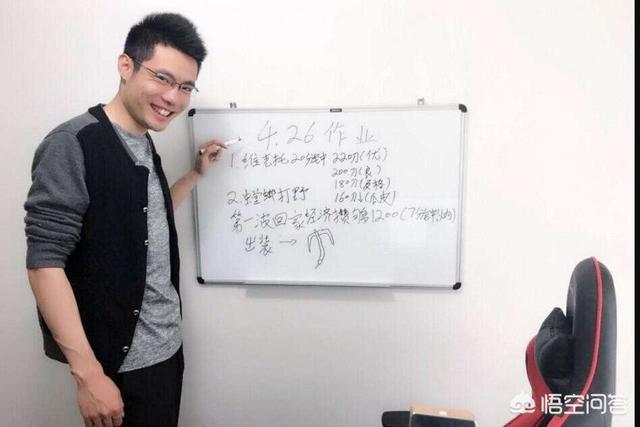 4.26作业
1.维克托20分钟 220刀(优)
200刀(良)
180刀(及格)
160刀↓(不及)
2.螳螂打野
第一波回家经济攒够1200(7分钟内)
出装→
悟空问答